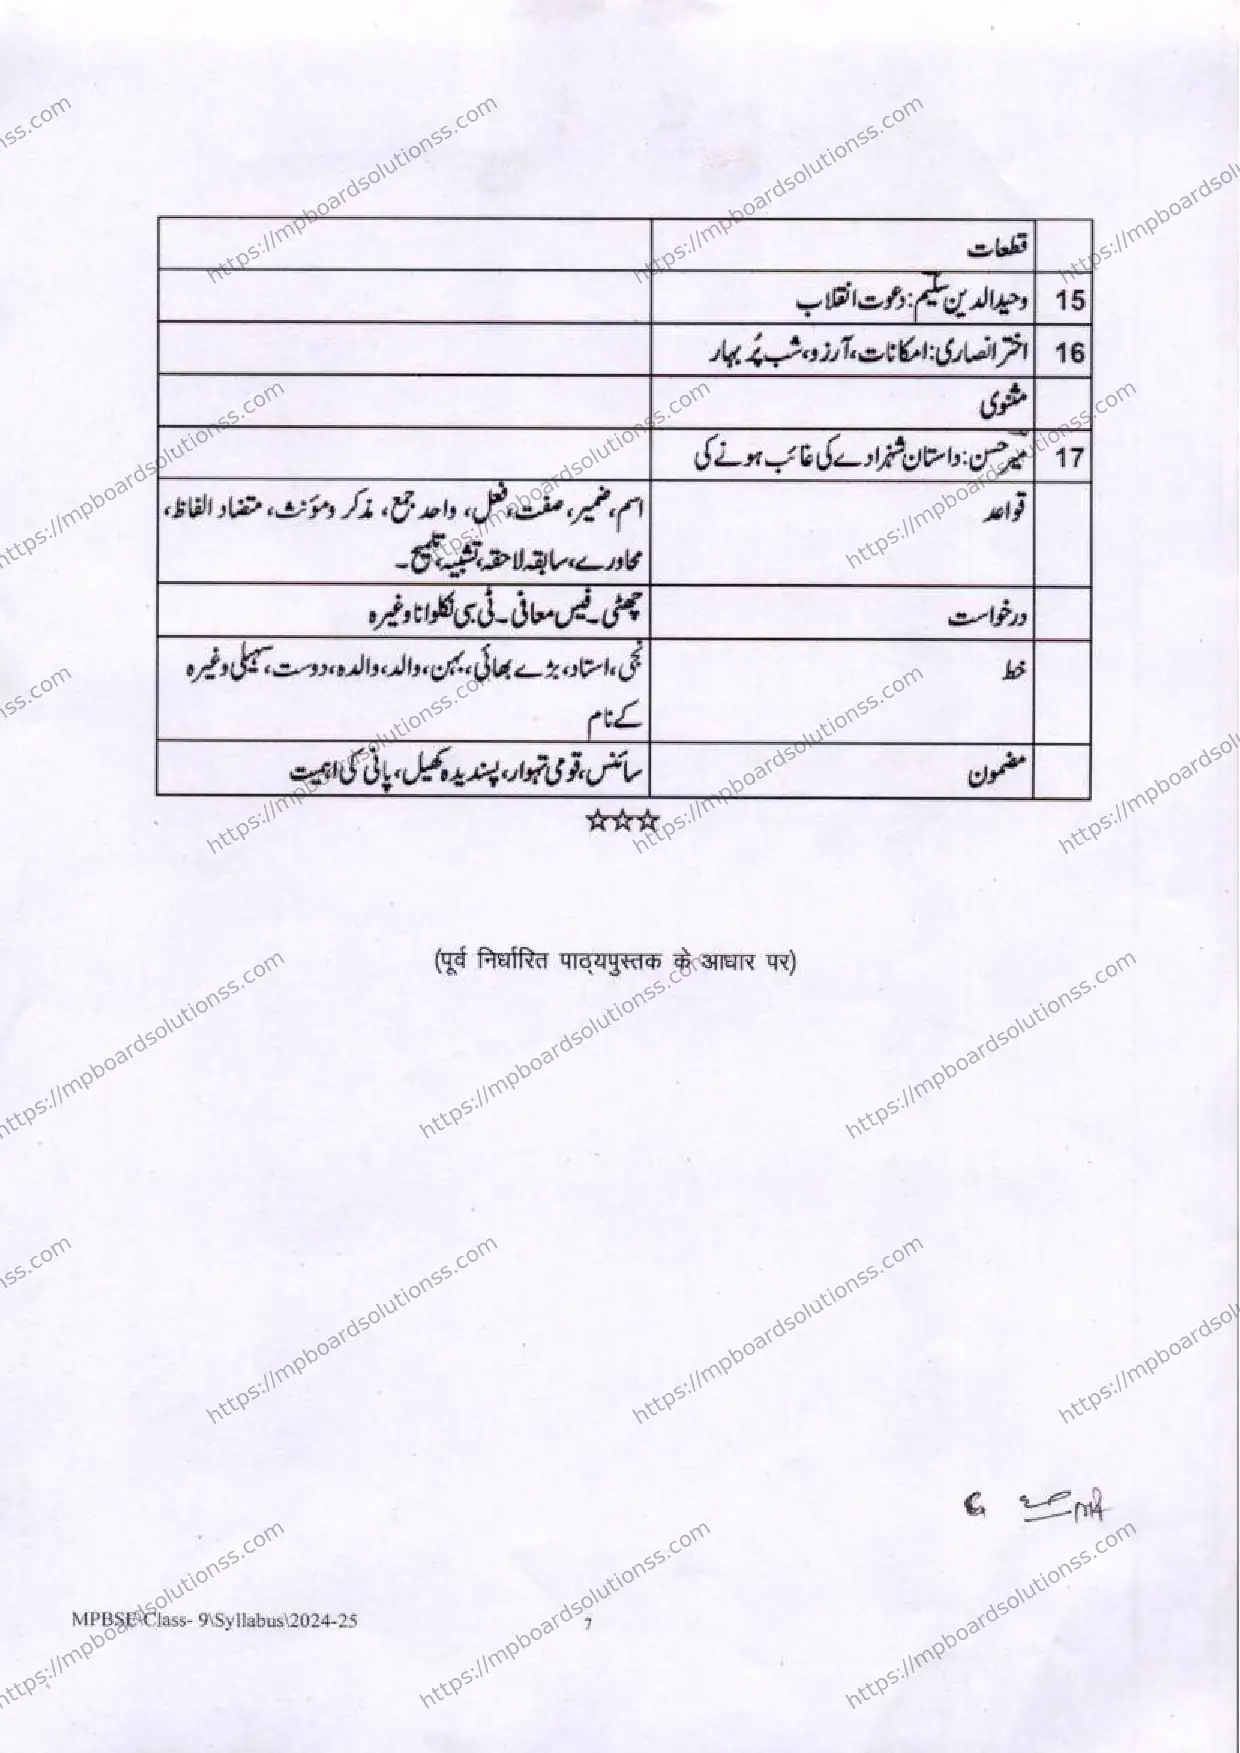 قطعات
15 وحیدالدین سلیم: دعوت انقلاب
16 اختر انصاری: امکانات، آرزو، شب پُر بہار
مثنوی
17 میر حسن: داستان شہزادے کی غائب ہونے کی
قواعد اسم، ضمیر، صفت، فعل، واحد جمع، مذکر و مؤنث، متضاد الفاظ،
محاورے، سابقہ لاحقہ، تشبیہ، تلمیح۔
درخواست چھٹی۔ فیس معافی۔ ٹی سی نکلوانا وغیرہ
خط نجی، استاد، بڑے بھائی، بہن، والد، والدہ، دوست، سہیلی وغیرہ
کے نام
مضمون سائنس، قومی تہوار، پسندیدہ کھیل، پانی کی اہمیت
☆☆☆
(पूर्व निर्धारित पाठ्यपुस्तक के आधार पर)
MPBSE\Class- 9\Syllabus\2024-25 7
https://mpboardsolutionss.com